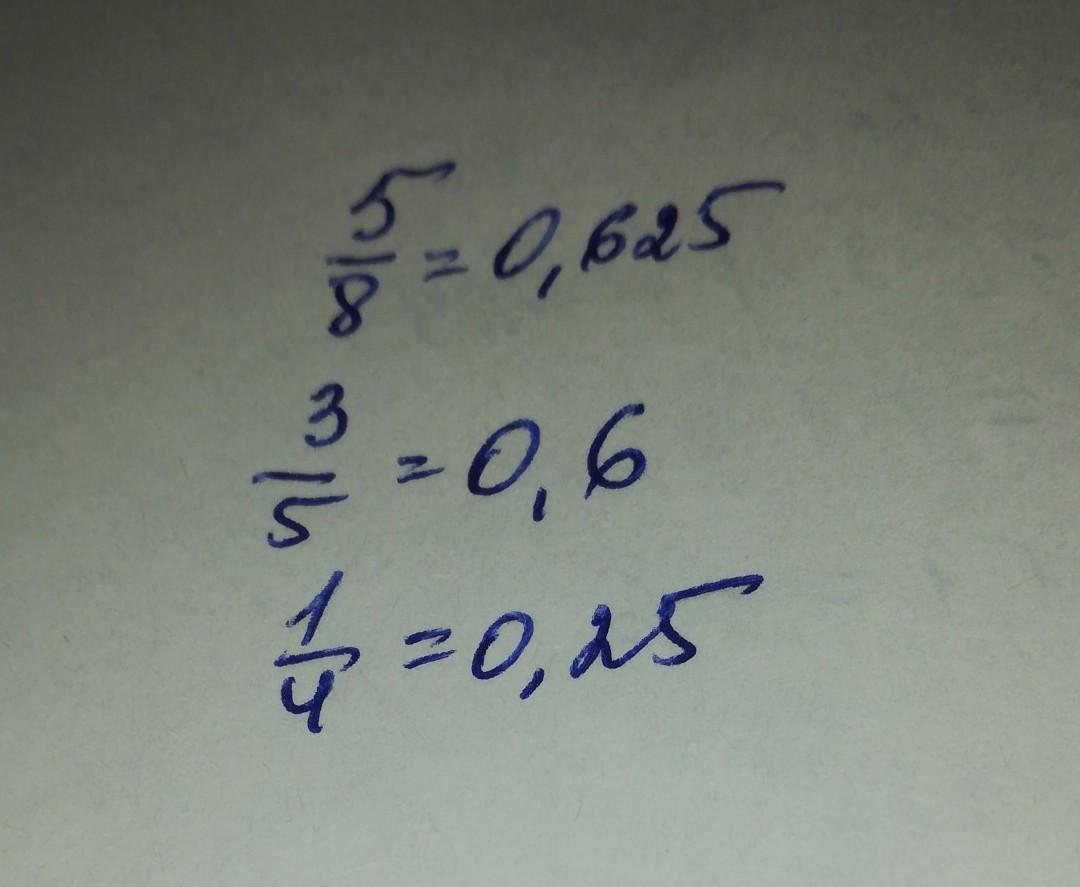 5/8 = 0,625
3/5 = 0,6
1/4 = 0,25